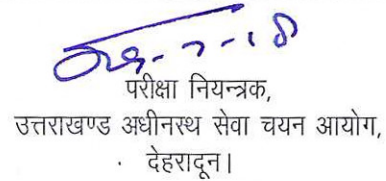 परीक्षा नियन्त्रक,
उत्तराखण्ड अधीनस्थ सेवा चयन आयोग,
देहरादून।